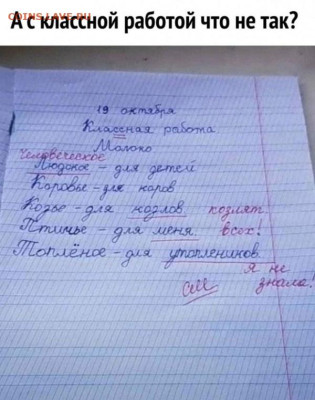 А с классной работой что не так?
COINS.LAVE.RU
19 октября
Классная работа
Молоко
Человеческое
Людское – для детей
Коровье – для коров
Козье – для козлов козлят
Птичье – для меня всех!
Топлёное – для утоплеников.
я не знала!
См